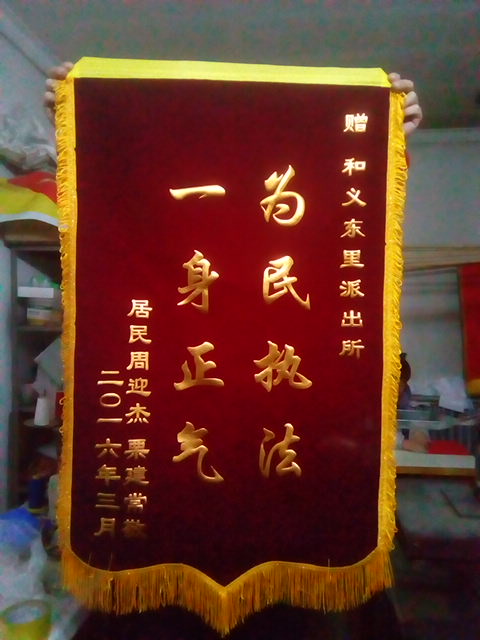 赠 和义东里派出所
为民执法
一身正气
居民周迎杰 栗建常敬
二〇一六年三月